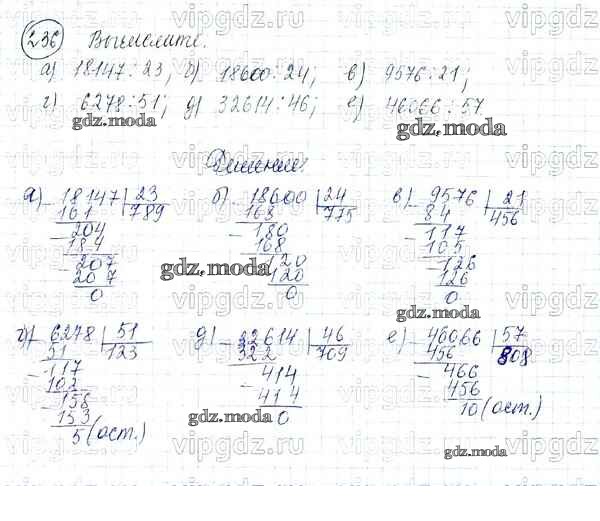 236 Вычислите.
а) 18147:23; б) 18600:24; в) 9576:21;
г) 6278:51; д) 32614:46; е) 46066:57
gdz.moda gdz.moda gdz.moda
Решение:
а) 18147 | 23 б) 18600 | 24 в) 9576 | 21
161 | 789 168 | 775 84 | 456
- 204 - 180 - 117
184 168 105
- 207 - 120 - 126
207 120 126
0 0 0
gdz.moda gdz.moda
г) 6278 | 51 д) - 32614 | 46 е) - 46066 | 57
51 | 123 322 | 709 456 | 808
- 117 - 414 - 466
102 414 456
- 158 0 10 (ост.)
153
5 (ост.)
gdz.moda gdz.moda
vipgdz.ru vipgdz.ru vipgdz.ru